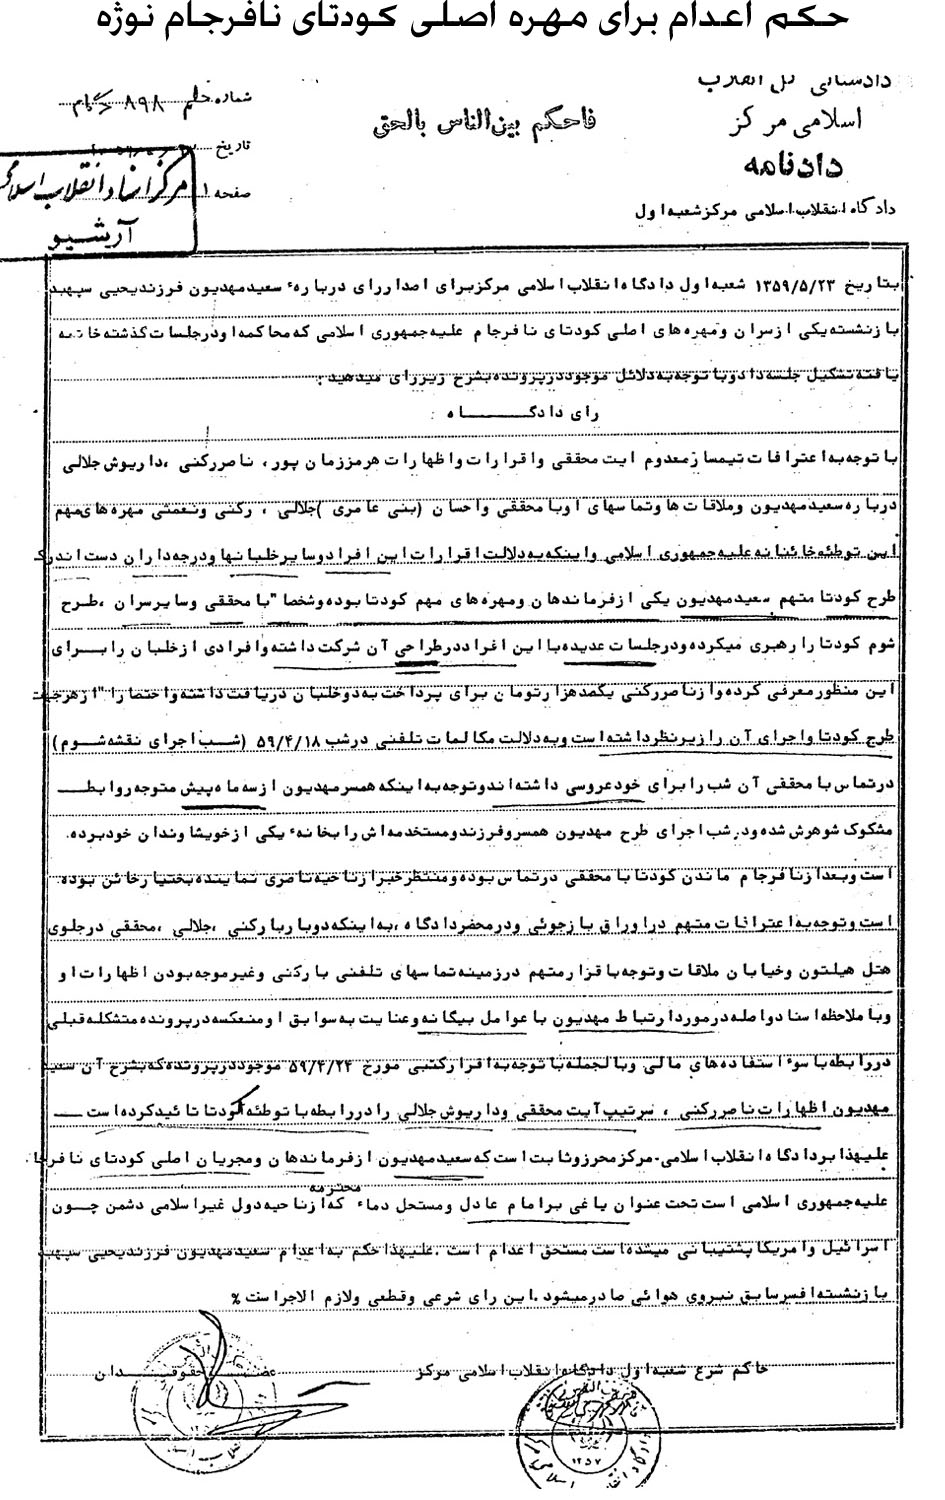 حکم اعدام برای مهره اصلی کودتای نافرجام نوژه
اسلامی مرکز
دادنامه
دادگاه انقلاب اسلامی مرکز شعبه اول
فاحکم بین الناس بالحق
شماره حکم ۸۹۸
تاریخ
صفحه ۱
مرکز اسناد انقلاب اسلامی
آرشیو
بتاریخ ۱۳۵۹/۵/۲۳ شعبه اول دادگاه انقلاب اسلامی مرکز برای اصدار رای درباره سعید مهدیون فرزند یحیی سپهبد
بازنشسته یکی از سران و مهره های اصلی کودتای نافرجام علیه جمهوری اسلامی که محاکمه او در جلسات گذشته خاتمه
یافته تشکیل جلسه داد و با توجه به دلائل موجود در پرونده بشرح زیر رای میدهد :
رای دادگـــــاه :
با توجه به اعترافات تیمسار معدوم ایت محققی و اقرارات و اظهارات هرمز زمان پور، ناصر رکنی ،داریوش جلالی
درباره سعید مهدیون و ملاقات ها و تماسهای او با محققی و احسان (بنی عامری )جلالی ، رکنی و نعمتی مهره های مهم
این توطئه خائنانه علیه جمهوری اسلامی و اینکه به دلالت اقرارات این افراد و سایر خلبانها و درجه داران دست اندرک
طرح کودتا متهم سعید مهدیون یکی از فرماندهان و مهره های مهم کودتا بوده و شخصا "با محققی و سایر سران ،طرح
شوم کودتا را رهبری میکرده و در جلسات عدیده با این افراد در طراحی آن شرکت داشته و افرادی از خلبان را بـرای
این منظور معرفی کرده و از ناصر رکنی یکصد هزار تومان برای پرداخت به دو خلبان دریافت داشته و اختصا را "از هر جهت
طرح کودتا و اجرای آن را زیر نظر داشته است و به دلالت مکالمات تلفنی در شب ۵۹/۴/۱۸ (شـب اجرای نقشه شـوم)
در تماس با محققی آن شب را برای خود عروسی داشته اند و توجه به اینکه همسر مهدیون از سه ماه پیش متوجه روابطـ
مشکوک شوهرش شده و در شب اجرای طرح مهدیون همسر و فرزند و مستخدمه اش را بخانه یکی از خویشاوندان خود برده.
است و بعد از نافرجام ماندن کودتا با محققی در تماس بوده و منتظر خبر از ناحیه ناصری نماینده بختیار خائن بوده.
است و توجه به اعترافات متهم در اوراق بازجوئی و در محضر دادگاه ،به اینکه دوبار با رکنی ،جلالی ،محققی در جلوی
هتل هیلتون و خیابان ملاقات و توجه با قرار متهم در زمینه تماسهای تلفنی با رکنی و غیر موجه بودن اظهارات او
و با ملاحظه اسناد واصله در مورد ارتباط مهدیون با عوامل بیگانه و عنایت به سوابق او منعکسه در پرونده متشکله قبلی
در رابطه با سوء استفاده های مالی و بالجمله با توجه به اقرار کتبی مورخ ۵۹/۴/۲۴ موجود در پرونده که بشرح آن سعید
مهدیون اظهارات ناصر رکنی ، سرتیپ آیت محققی و داریوش جلالی را در رابطه با توطئه کودتا تائید کرده است ـــ
علیهذا بر دادگاه انقلاب اسلامی-مرکز محرز و ثابت است که سعید مهدیون از فرماندهان و مجریان اصلی کودتای نافرجا
علیه جمهوری اسلامی است تحت عنوان یاغی بر امام عادل و مستحل دماء محترمه که از ناحیه دول غیر اسلامی دشمن چـون
اسرائیل و امریکا پشتیبانی میشده است مستحق اعدام است .علیهذا حکم به اعدام سعید مهدیون فرزند یحیی سپهبد
بازنشسته افسر سابق نیروی هوائی صادر میشود .این رای شرعی و قطعی و لازم الاجراست %
حاکم شرع شعبه اول دادگاه انقلاب اسلامی مرکز
عضـــو حقوقـــدان
۱۳۵۷